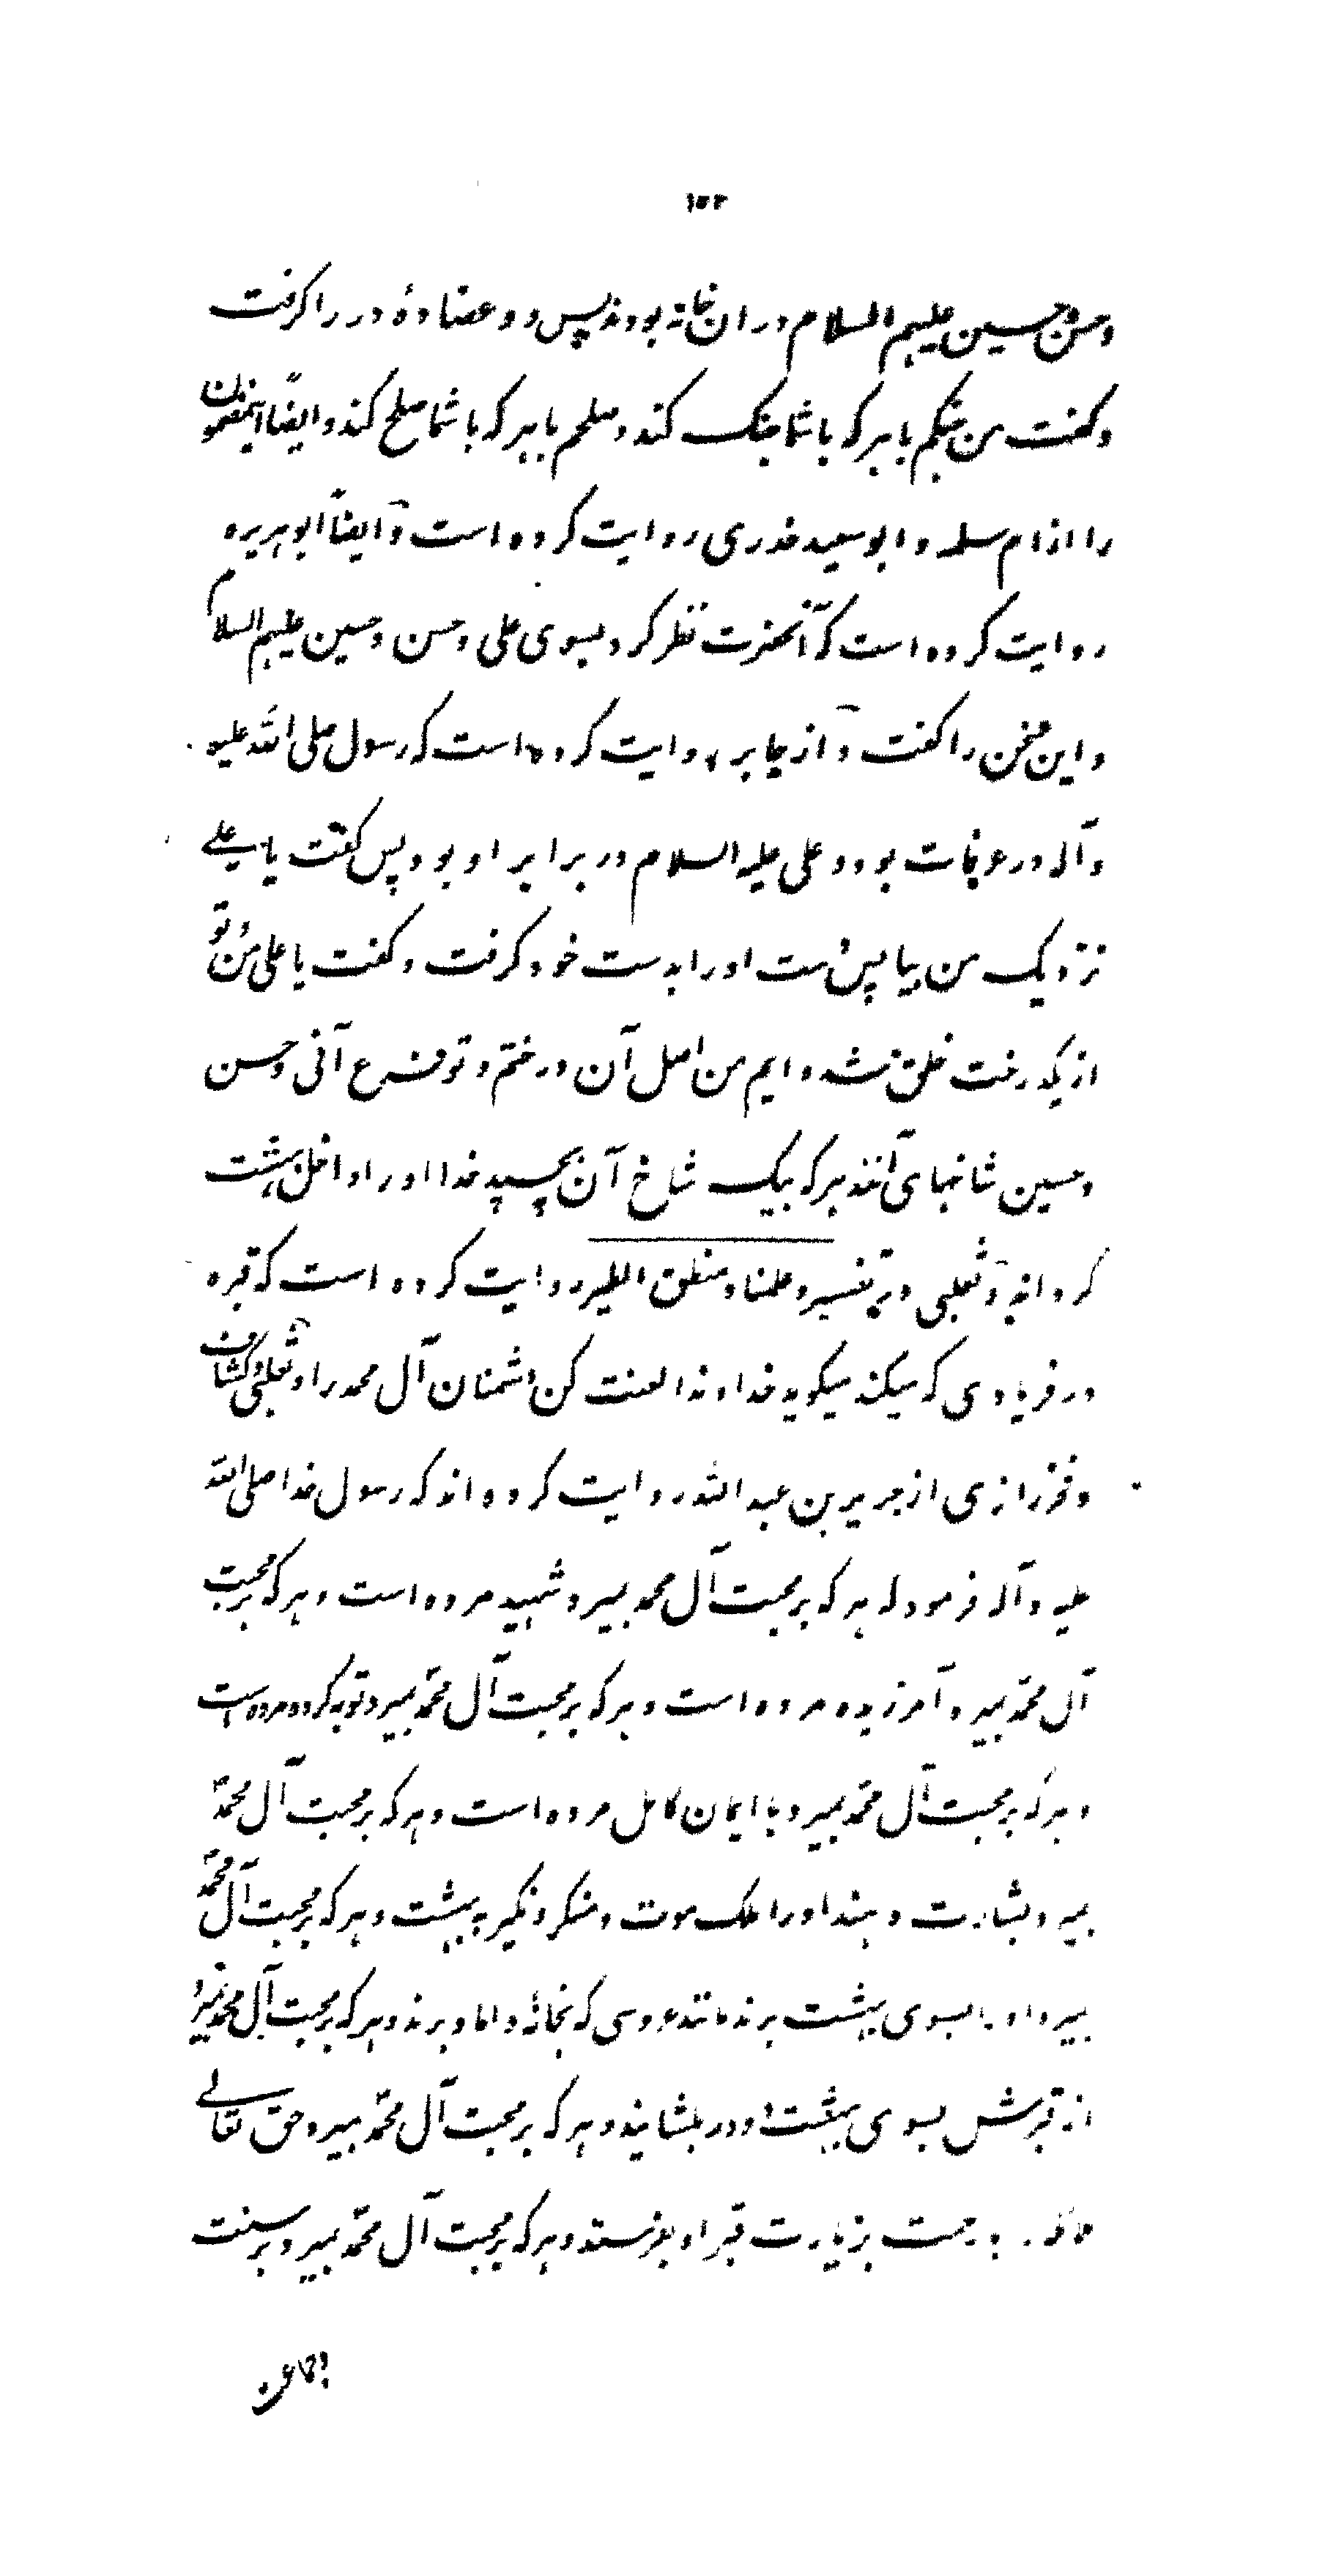 ۱۵۲
و حسن و حسین علیهم السلام در ان خانه بودند پس دو عضادهٔ در را گرفت
و گفت من جنگم با هر که با شما جنگ کند و صلحم با هر که با شما صلح کند و ایضاً اینمضمون
را از ام سلمه و ابو سعید خدری روایت کرده است و ایضاً ابو هریره
روایت کرده است که آنحضرت نظر کرد بسوی علی و حسن و حسین علیهم السلام
و این سخن را گفت و از جابر روایت کرده است که رسول صلی الله علیه
و آله در عرفات بود و علی علیه السلام در برابر او بود پس گفت یا علی
نزدیک من بیا پس دست او را بدست خود گرفت و گفت یا علی من و تو
از یکدرخت خلق شده ایم من اصل آن درختم و تو فرع آنی و حسن
و حسین شاخهای آنند هر که بیک شاخ آن بچسپد خدا او را داخل بهشت
گرداند و ثعلبی در تفسیر و علمنا منطق الطیر روایت کرده است که قبره
در فریادی که میکند میگوید خداوندا لعنت کن دشمنان آل محمد را و ثعلبی و کشاف
و فخر رازی از جریر بن عبد الله روایت کرده اند که رسول خدا صلی الله
علیه و آله فرمود که هر که بر محبت آل محمد بمیرد شهید مرده است و هر که بر محبت
آل محمّد بمیرد آمرزیده مرده است و هر که بر محبت آل محمّد بمیرد توبه کرده مرده است
و هر که بر محبت آل محمّد بمیرد با ایمان کامل مرده است و هر که بر محبت آل محمّد
بمیرد بشارت دهند او را ملک موت و منکر و نکیر به بهشت و هر که بر محبت آل محمّد
بمیرد او را بسوی بهشت برند مانند عروسی که بخانهٔ داماد برند و هر که بر محبت آل محمّد بمیرد
از قبرش بسوی بهشت دو در بگشایند و هر که بر محبت آل محمّد بمیرد حق تعالی
رحمت بزیارت قبر او بفرستد و هر که بر محبت آل محمّد بمیرد بر سنت